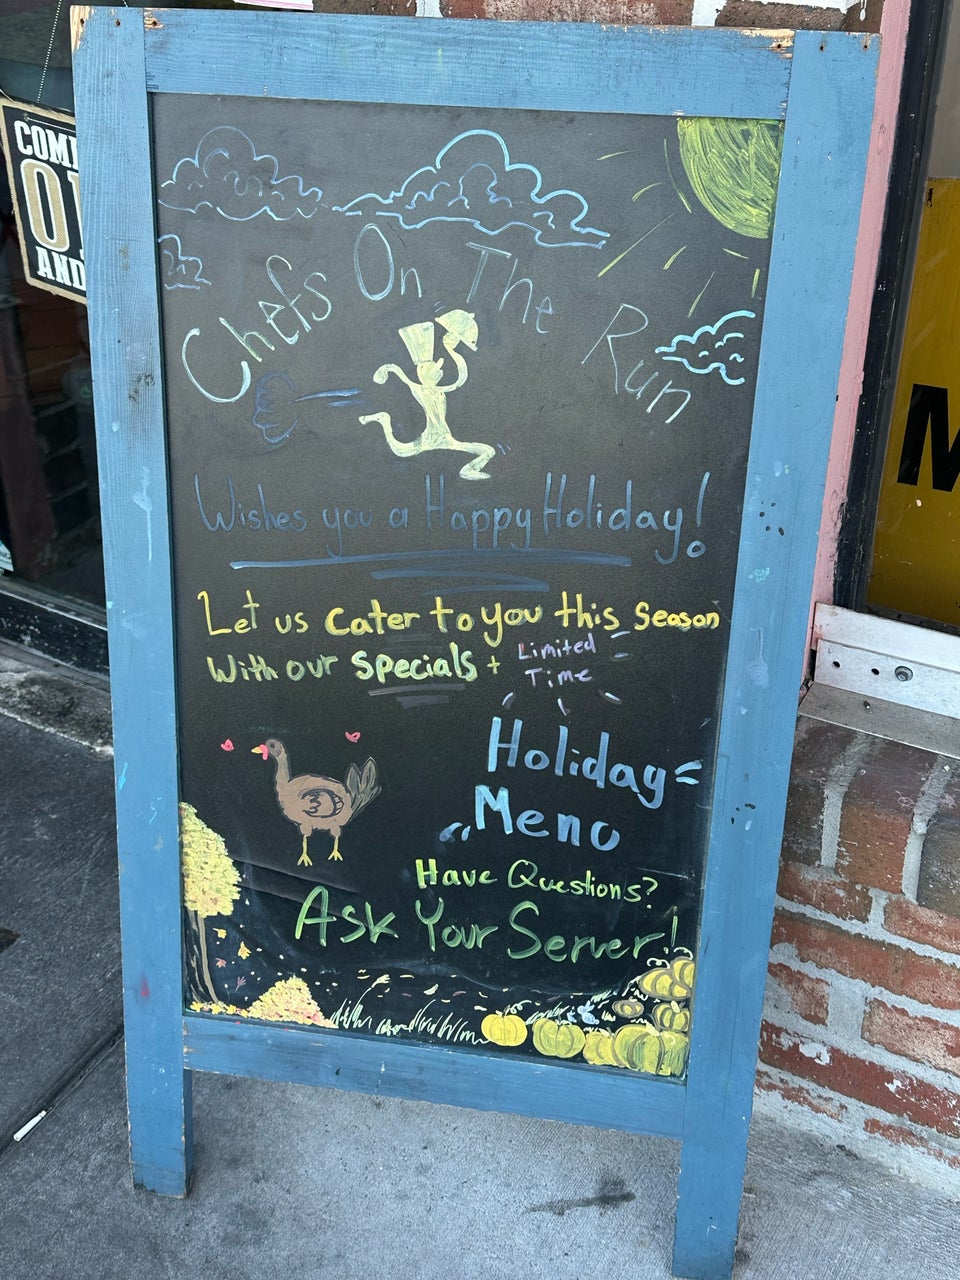 COM
AND
Chefs On The Run
Wishes you a Happy Holiday!
Let us cater to you this Season
With our specials + Limited
Time
Holiday
Menu
Have Questions?
Ask Your Server!
M